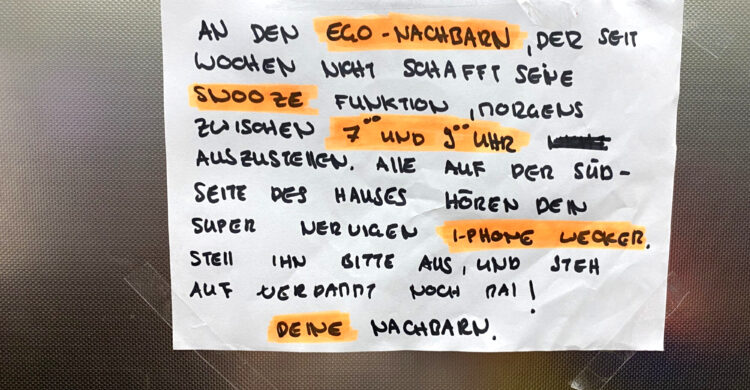 AN DEN EGO-NACHBARN, DER SEIT
WOCHEN NICHT SCHAFFT SEINE
SNOOZE FUNKTION, MORGENS
ZWISCHEN 7⁰⁰ UND 9⁰⁰ UHR
AUSZUSTELLEN. ALLE AUF DER SÜD-
SEITE DES HAUSES HÖREN DEIN
SUPER NERVIGEN I-PHONE WECKER.
STELL IHN BITTE AUS, UND STEH
AUF VERDAMMT NOCH MAL!
DEINE NACHBARN.